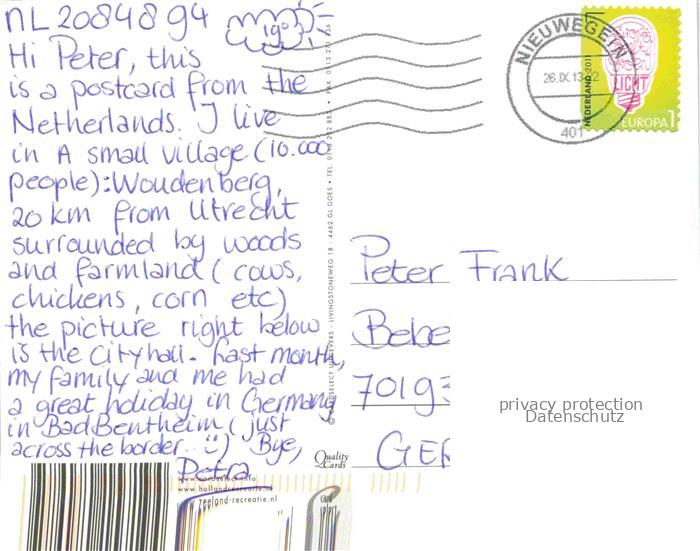 NL2084894
Hi Peter, this
is a postcard from the
Netherlands. I live
in A small village (10.000
people): Woudenberg,
20 km from Utrecht
surrounded by woods
and farmland ( cows,
chickens, corn etc)
the picture right below
is the cityhall. Last month,
my family and me had
a great holiday in Germany
in Bad Bentheim ( just
across the border.. :) Bye,
Petra
NIEUWEGEIN
26.IX.13
401
NEDERLAND 2011
LICHT
EUROPA 1
Peter Frank
Bebe
70193
GER
privacy protection
Datenschutz
LIVINGSTONEWEG 18 · 4462 GL GOES · TEL.
Quality
Cards
www.hollandrecreatie.nl
zeeland-recreatie.nl